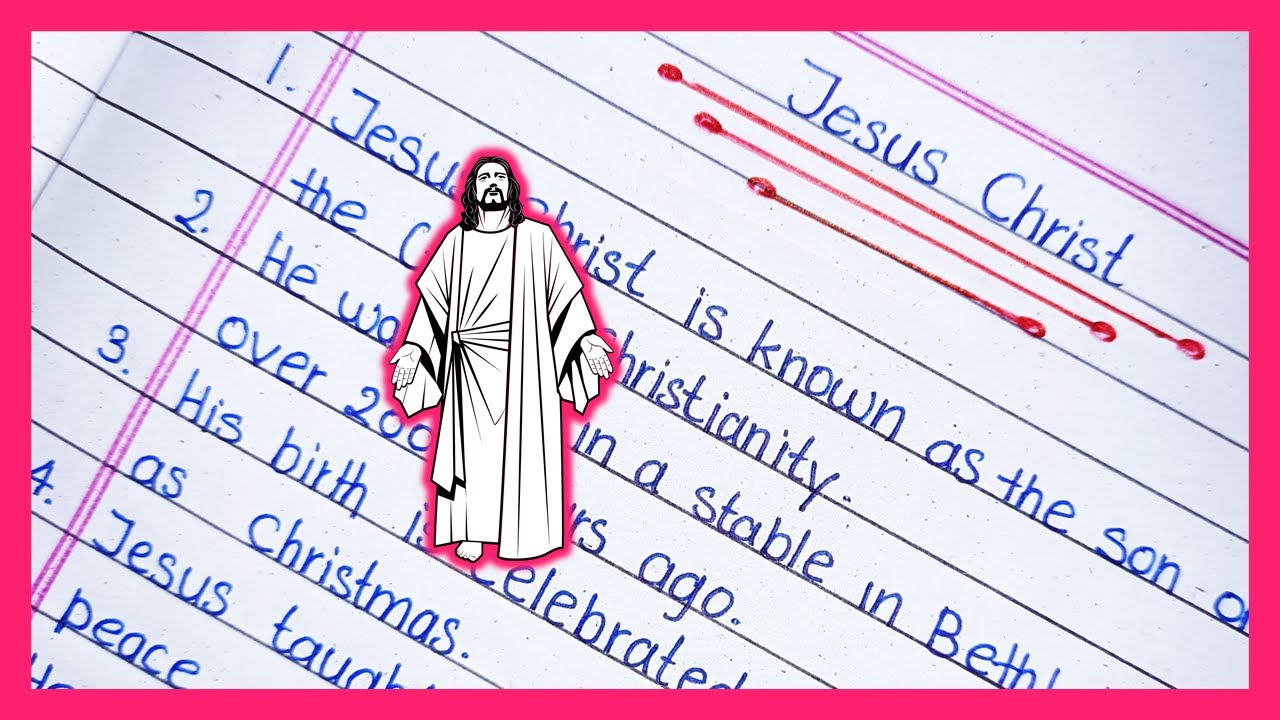 Jesus Christ
1. Jesus Christ is known as the son
the Christianity.
2. He in a stable in
over ago.
3. His birth is celebrated
as Christmas.
4. Jesus
peace